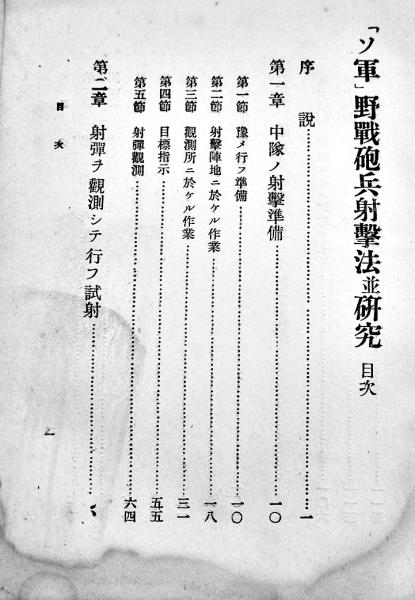 「ソ軍」野戰砲兵射擊法並研究 目次
序說……一
第一章 中隊ノ射擊準備……一〇
第一節 豫メ行フ準備……一〇
第二節 射擊陣地ニ於ケル作業……一八
第三節 觀測所ニ於ケル作業……三一
第四節 目標指示……五五
第五節 射彈觀測……六四
第二章 射彈ヲ觀測シテ行フ試射……
目次
一